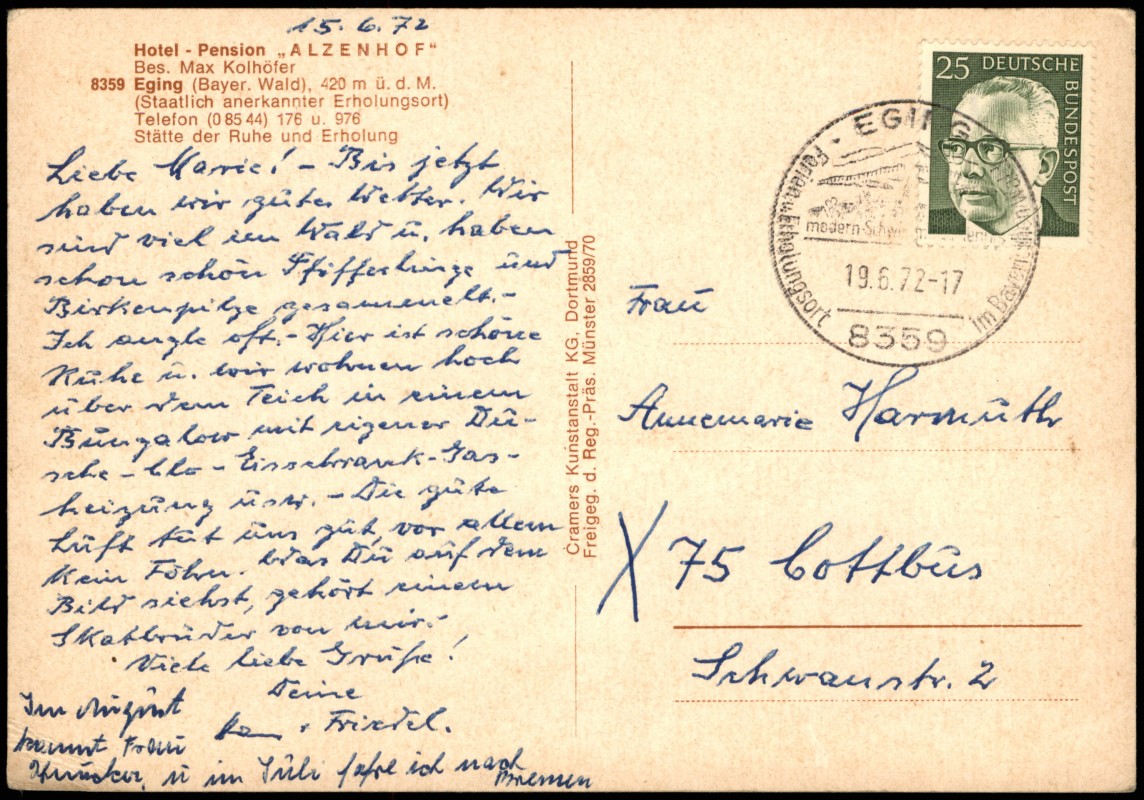 15.6.72
Hotel - Pension „ALZENHOF"
Bes. Max Kolhöfer
8359 Eging (Bayer. Wald), 420 m ü. d. M.
(Staatlich anerkannter Erholungsort)
Telefon (0 85 44) 176 u. 976
Stätte der Ruhe und Erholung
Liebe Marie! - Bis jetzt
haben wir gutes Wetter. Wir
sind viel im Wald u. haben
schon schön Pfifferlinge und
Birkenpilze gesammelt. -
Ich angle oft. - Hier ist schöne
Ruhe u. wir wohnen hoch
über dem Teich in einem
Bungalow mit eigener Du-
sche - Clo - Eisschrank - Gas-
heizung usw. - Die gute
Luft tut uns gut, vor allem
kein Föhn. Was Du auf dem
Bild siehst, gehört einem
Skatbruder von mir. -
Viele liebe Grüße!
Deine
Friedel.
Im August
kommt Frau
u im Juli fahre ich nach
Bremen
Cramers Kunstanstalt KG, Dortmund
Freigeg. d. Reg.-Präs. Münster 2859/70
25 DEUTSCHE
BUNDESPOST
EGING
Ferien u. Erholungsort
im Bayer.
19.6.72-17
8359
Frau
Annemarie Harmuth
X 75 Cottbus
Schwanstr. 2